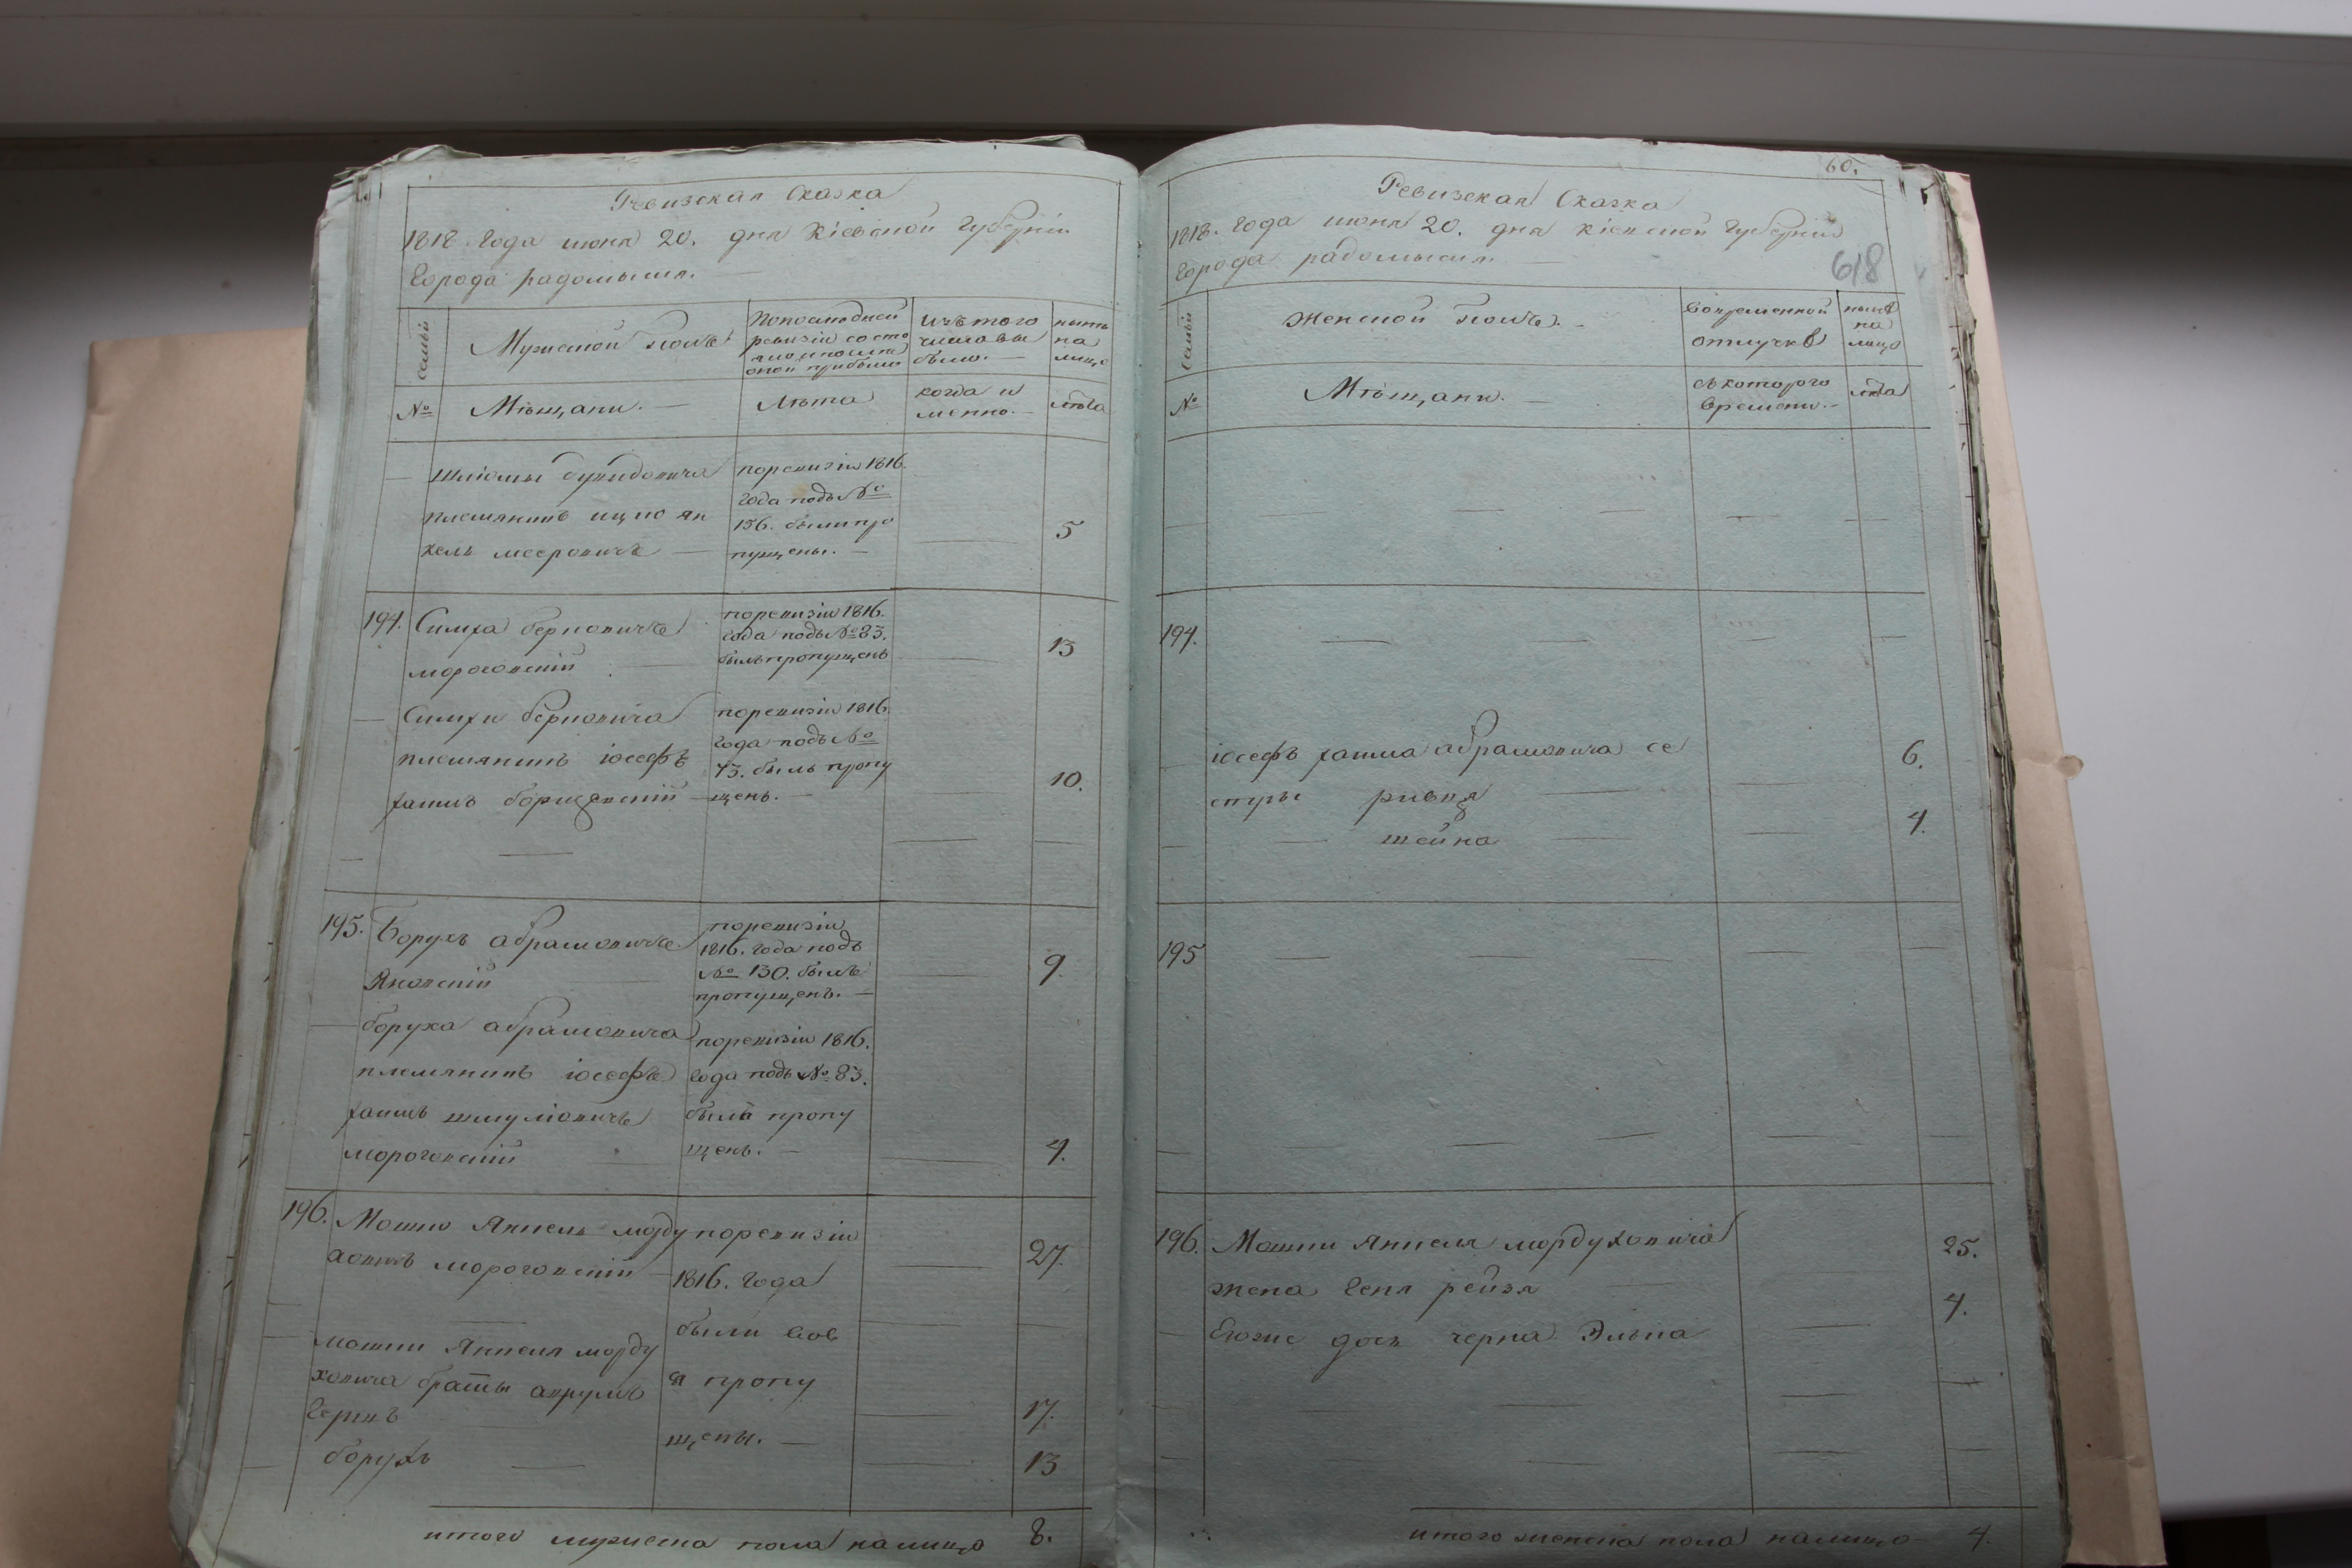 Ревизская Сказка
1818. Года июня 20. дня Кіевской Губерніи
Города радомысля.
Семьи
Мужеской полъ
По последней
ревизіи состо
яло и после
оной прибыло
Изъ того
числа вы
было.
нынѣ
на
лицо
№
Мѣщани.
Лѣта
когда и
менно.
лѣта
племянникъ ицко ян
кель мееровичь
поревизіи 1816.
Года подъ №
156. были про
пущены.
5
194. Симха берковичь
мороговскій
поревизіи 1816.
Года подъ № 83.
былъ пропущенъ
13
Симхи берковича
племянникъ іосефъ
хаимъ
поревизіи 1816.
Года подъ №
73. былъ пропу
щенъ.
10.
195. Борухъ абрамовичь
Яновскій
поревизіи
1816. Года подъ
№ 130. былъ
пропущенъ.
9.
боруха абрамовича
племянникъ іосефъ
хаимъ шмуліовичь
мороговскій
поревизіи 1816.
Года подъ № 83.
былъ пропу
щенъ.
4.
196. Мошко Янкель морду
ховичь мороговскій
27.
мошки Янкеля морду
ховича братьи
Гершъ
борухъ
поревизіи
1816. Года
были
пропу
щены.
17.
13
итого мужеска пола налицо 8.
60.
Ревизская Сказка
1818. Года июня 20. дня Кіевской Губерніи
Города радомысля.
618
Семьи
Женской полъ.
Вовременной
отлучкѣ
нынѣ
на
лицо
№
Мѣщанки.
съ котораго
времени.
лѣта
194.
іосефъ хаима абрамовича се
стры ривка
шейна
6.
4.
195
196. Мошки Янкеля мордуховича
жена Геня рейзя
Егоже дочь черна Элька
25.
4.
итого женска пола налицо 4.